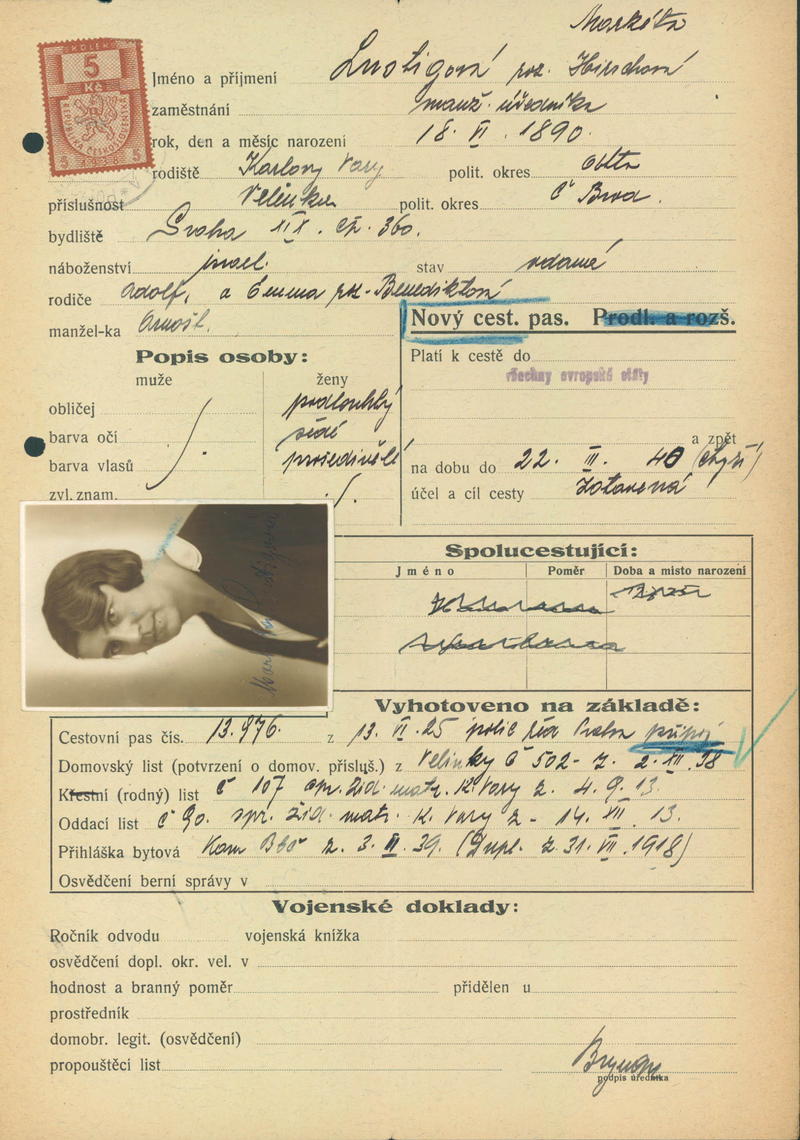 Markéta
KOLEK
5
Kč
REPUBLIKA ČESKOSLOVENSKÁ
5 1938 5
Jméno a příjmení Lustigová roz. Hirschová
zaměstnání manž. úředníka
rok, den a měsíc narození 18. VI. 1890.
rodiště Karlovy Vary polit. okres
příslušnost Velenka polit. okres Č Brod.
bydliště Praha XIX. čp. 360.
náboženství israel. stav vdaná
rodiče Adolf, a Emma roz. Benediktová
manžel-ka Arnošt.
Nový cest. pas. Prodl. a rozš.
Popis osoby:
muže ženy
obličej podlouhlý
barva očí šedé
barva vlasů prošedivělé
zvl. znam.
Platí k cestě do
všechny evropské státy
a zpět
na dobu do 22. III. 40
účel a cíl cesty zotavená
Spolucestující:
Jméno Poměr Doba a místo narození
Vyhotoveno na základě:
Cestovní pas čís. 13.976. z 13. VI. 25 polic řed Praha
Domovský list (potvrzení o domov. přísluš.) z Velenky č 502 z. 2. XII. 38
Křestní (rodný) list č 107 spr. žid. matr. K. Vary z. 4. 9. 13.
Oddací list č 90. spr. žid. matr. K. Vary z 14. VII. 13.
Přihláška bytová Kom z. 3. II. 39. (Dupl. z 31. VII. 1918)
Osvědčení berní správy v
Vojenské doklady:
Ročník odvodu vojenská knížka
osvědčení dopl. okr. vel. v
hodnost a branný poměr přidělen u
prostředník
domobr. legit. (osvědčení)
propouštěcí list
podpis úředníka